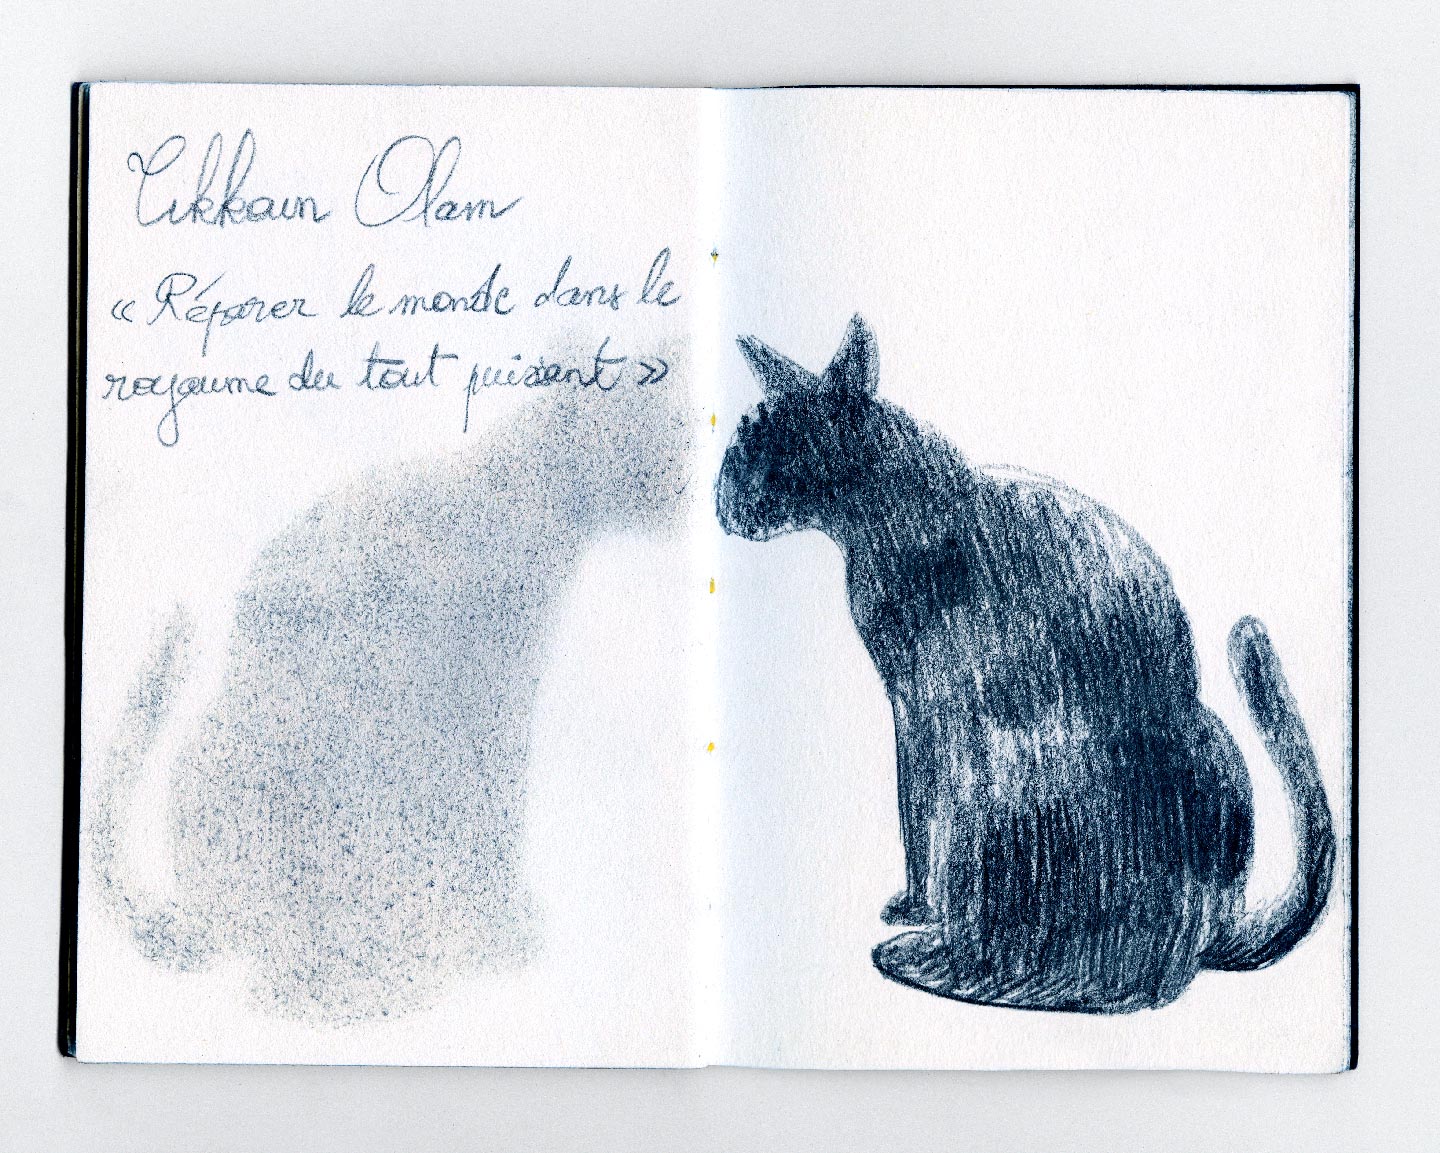 Tikkaun Olam
« Réparer le monde dans le
royaume du tout puissant »